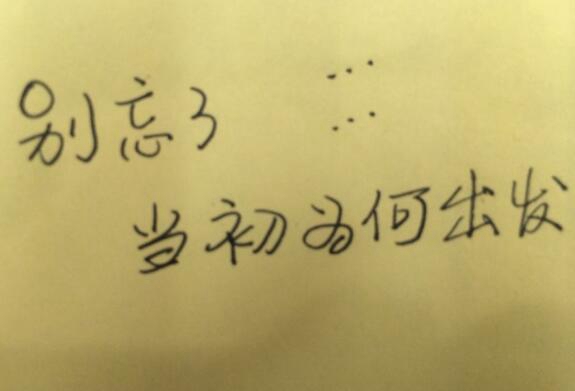 别忘了……
当初为何出发